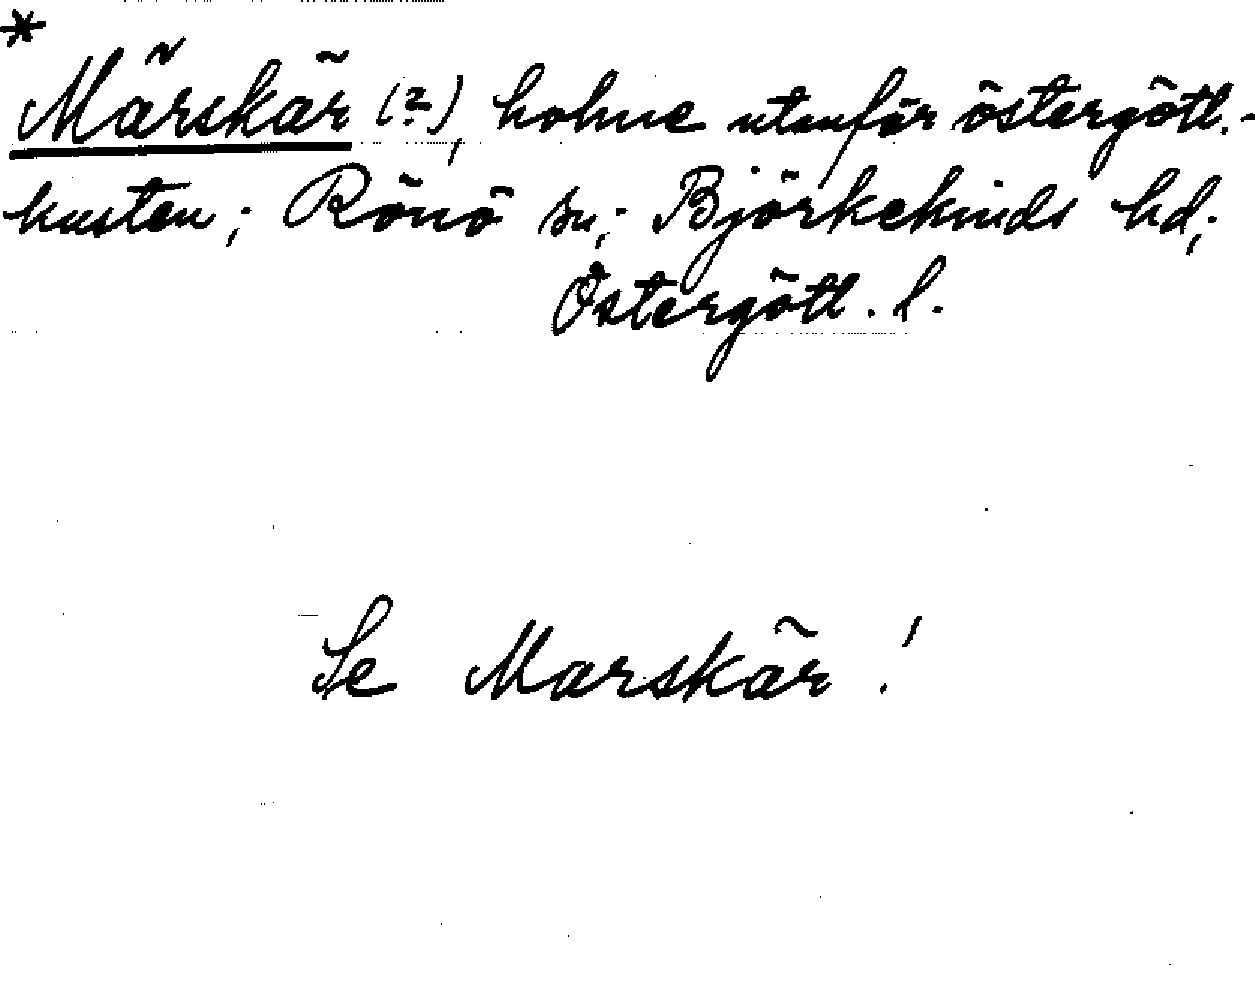 *
Märskär (?), holme utanför östergötl.-
kusten; Rönö sn; Björkekinds hd;
Östergötl. l.
Se Marskär!